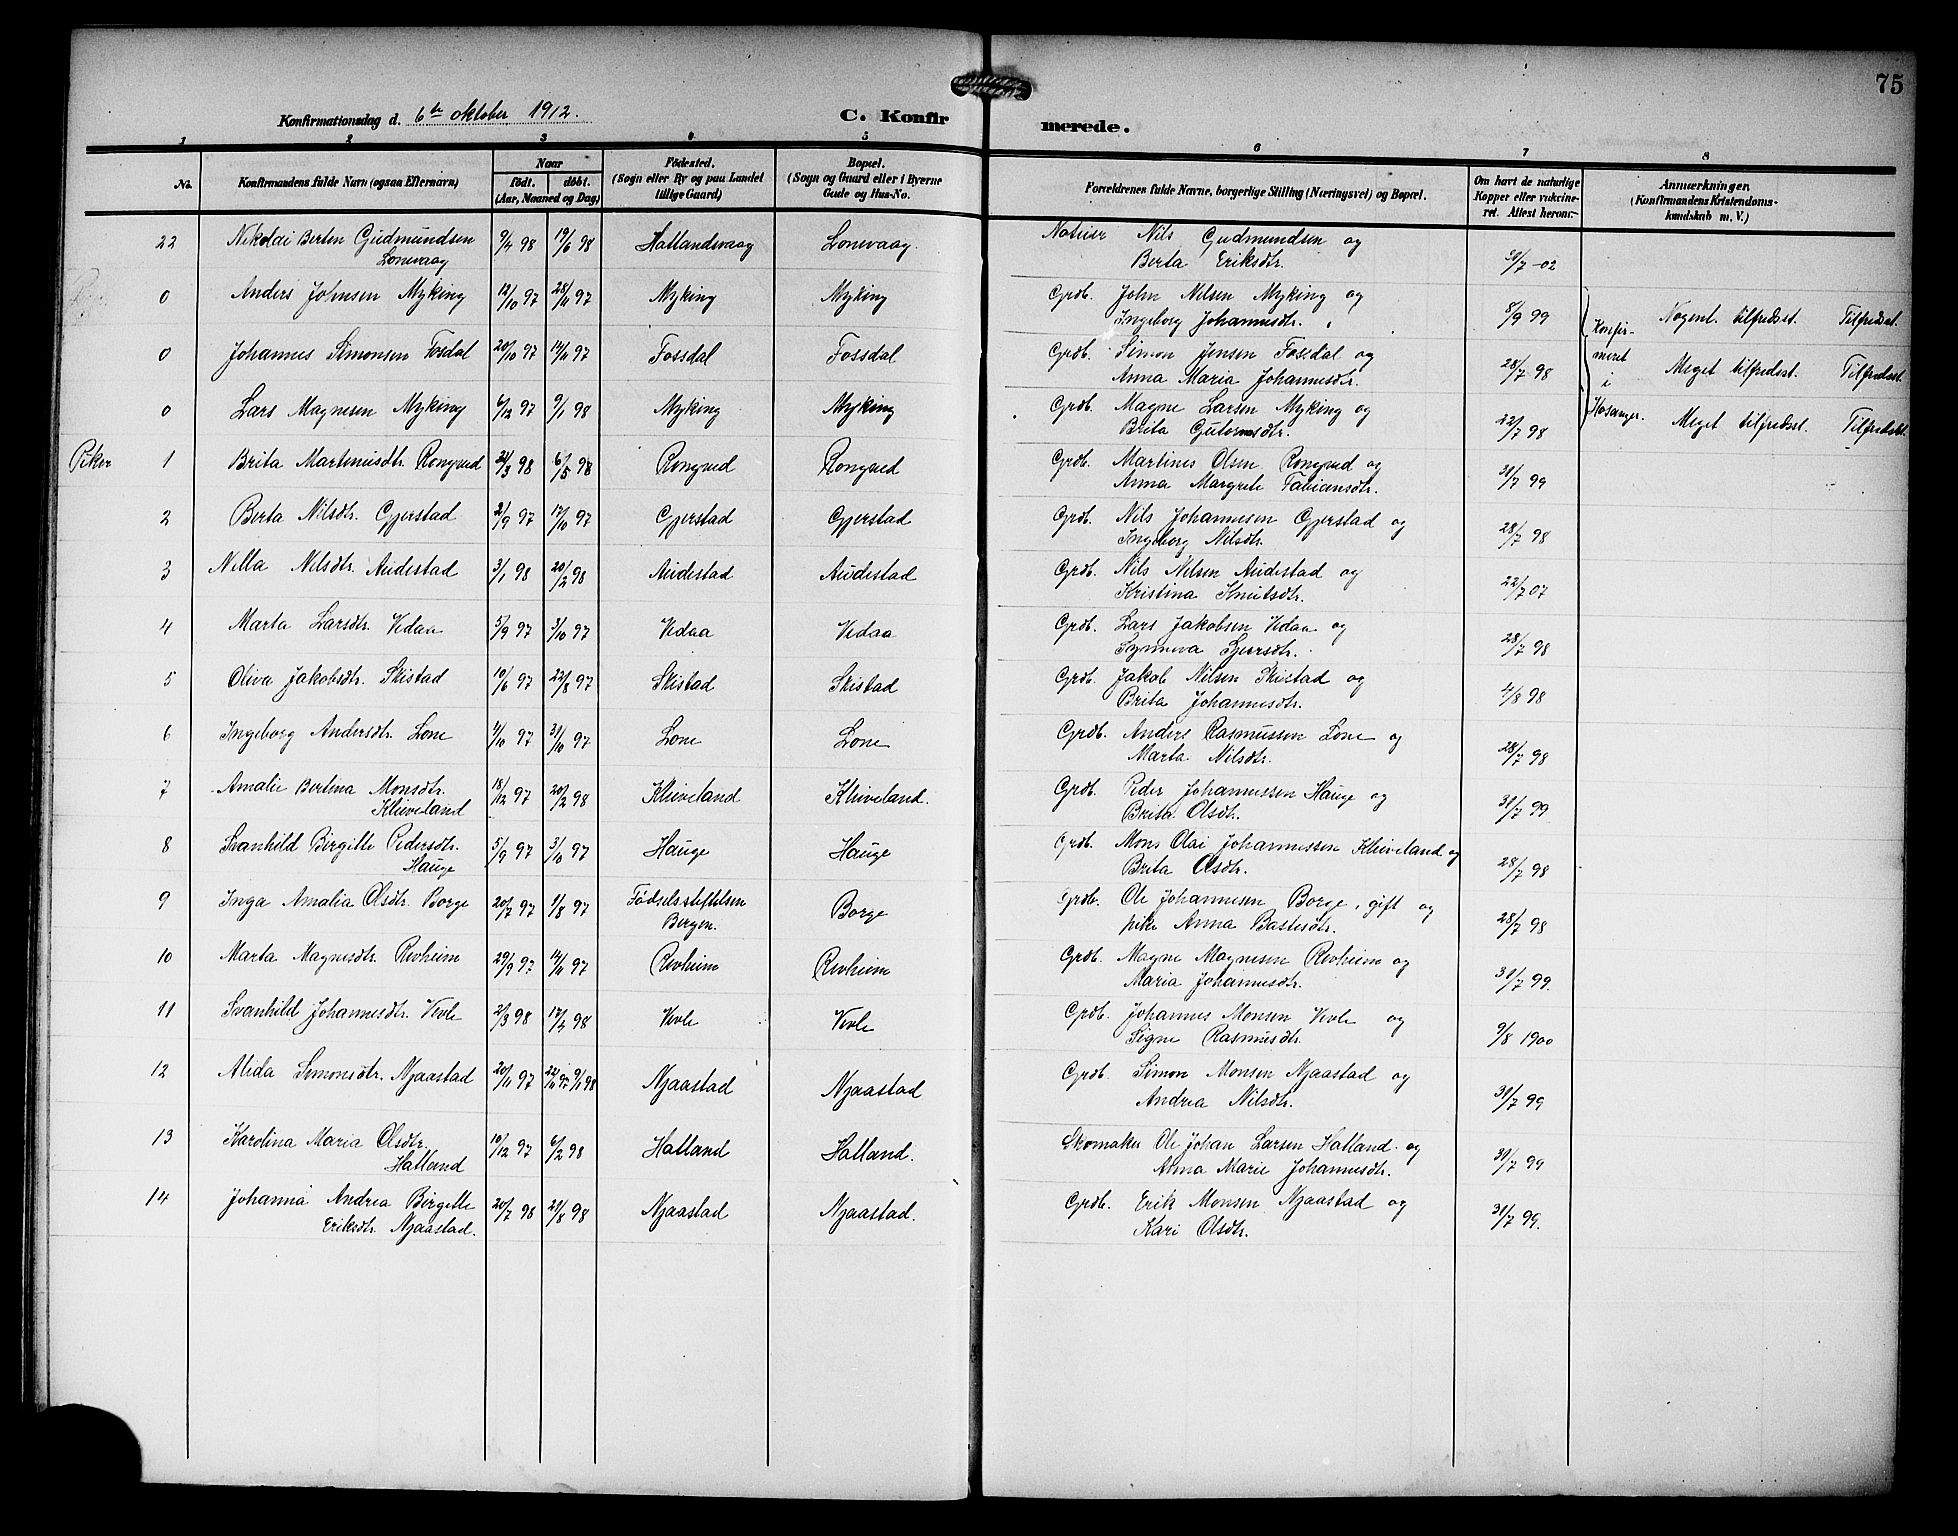 75
Konfirmationsdag d. 6te oktober 1912.
C. Konfirmerede.
1 2 3 4 5 6 7 8
No.
Konfirmandens fulde Navn (ogsaa Efternavn)
Naar
födt. döbt.
(Aar, Maaned og Dag)
Födested.
(Sogn eller By og paa Landet
tillige Gaard.)
Bopæl.
(Sogn og Gaard eller i Byerne
Gade og Hus-No.
Forældrenes fulde Navne, borgerlige Stilling (Næringsvei) og Bopæl.
Om havt de naturlige
Kopper eller vakcine-
ret. Attest herom.
Anmærkninger.
(Konfirmandens Kristendoms-
kundskab m. V.)
22 Nikolai Berten Gudmundsen 9/4 98 19/6 98 Hallandsvaag Lonevaag. Noteier Nils Gudmundsen og
Lonevaag Berta Eriksdtr. 31/7-02
0 Anders Johnsen Myking 12/10 97 28/11 97 Myking Myking Grdb. John Nilsen Myking og
Ingeborg Johannesdtr. 8/9 99 Nogenl. tilfredsst. Tilfredsst.
0 Johannes Simonsen Fosdal 20/10 97 14/11 97 Fossdal Fossdal Grdb. Simon Jensen Fossdal og
Anna Maria Johannesdtr. 28/7 98 Meget tilfredsst. Tilfredsst.
0 Lars Magnesen Myking 6/12 97 9/1 98 Myking Myking Grdb. Magne Larsen Myking og
Brita Gutormsdtr. 22/7 98 Meget tilfredsst. Tilfredsst.
Konfir-
meret
i
Hosanger.
Piker 1 Brita Martinusdtr. Rongved 24/3 98 6/5 98 Rongved Rongved Grdb. Martines Olsen Rongved og
Anna Margrete Fabiansdtr. 31/7 99
2 Berta Nilsdtr. Gjerstad 2/9 97 17/10 97 Gjerstad Gjerstad Grdb. Nils Johannesen Gjerstad og
Ingeborg Nilsdtr. 28/7 98
3 Nilla Nilsdtr. Audestad 3/1 98 20/2 98 Audestad Audestad Grdb. Nils Nilsen Audestad og
Kristina Knutsdtr. 22/7 07
4 Marta Larsdtr. Vedaa 5/9 97 3/10 97 Vedaa Vedaa Grdb. Lars Jakobsen Vedaa og
Synneva Sjursdtr. 28/7 98
5 Oliva Jakobsdtr. Skistad 10/6 97 22/8 97 Skistad Skistad Grdb. Jakob Nilsen Skistad og
Brita Johannesdtr. 4/8 98
6 Ingeborg Andersdtr. Lone 1/10 97 31/10 97 Lone Lone Grdb. Anders Rasmussen Lone og
Marta Nilsdtr. 28/7 98
7 Amalie Bertina Monsdtr. 18/12 97 20/2 98 Kleiveland Kleiveland. Grdb. Peder Johannessen Hauge og
Kleiveland Brita Olsdtr. 31/7 99
8 Svanhild Birgitte Pedersdtr. 5/9 97 3/10 97 Hauge Hauge Grdb. Mons Olai Johannessen Kleiveland og
Hauge Brita Olsdtr. 28/7 98
9 Inga Amalia Olsdtr. Borge 20/7 97 1/8 97 Fødselsstiftelsen Borge Grdb. Ole Johannesen Borge, gift og
Bergen. pike Anna Bastesdtr. 28/7 98
10 Marta Magnesdtr. Revheim 29/9 97 14/11 97 Revheim Revheim Grdb. Magne Magnesen Revheim og
Maria Johannesdtr. 31/7 99.
11 Svanhild Johannesdtr. Vevle 2/3 98 17/4 98 Vevle Vevle Grdb. Johannes Monsen Vevle og
Signe Rasmusdtr. 9/8 1900
12 Alida Simonsdtr. Njaastad 20/11 97 22/11 97 - 9/1 98 Njaastad Njaastad Grdb. Simon Monsen Njaastad og
Andrea Nilsdtr. 31/7 99
13 Karolina Maria Olsdtr. 10/12 97 6/2 98 Hatland Hatland. Skomaker Ole Johan Larsen Hatland og
Hatland Anna Marie Johannesdtr. 31/7 99
14 Johanna Andrea Birgitte 20/7 98 21/8 98 Njaastad Njaastad. Grdb. Erik Monsen Njaastad og
Eriksdtr. Njaastad. Kari Olsdtr. 31/7 99.